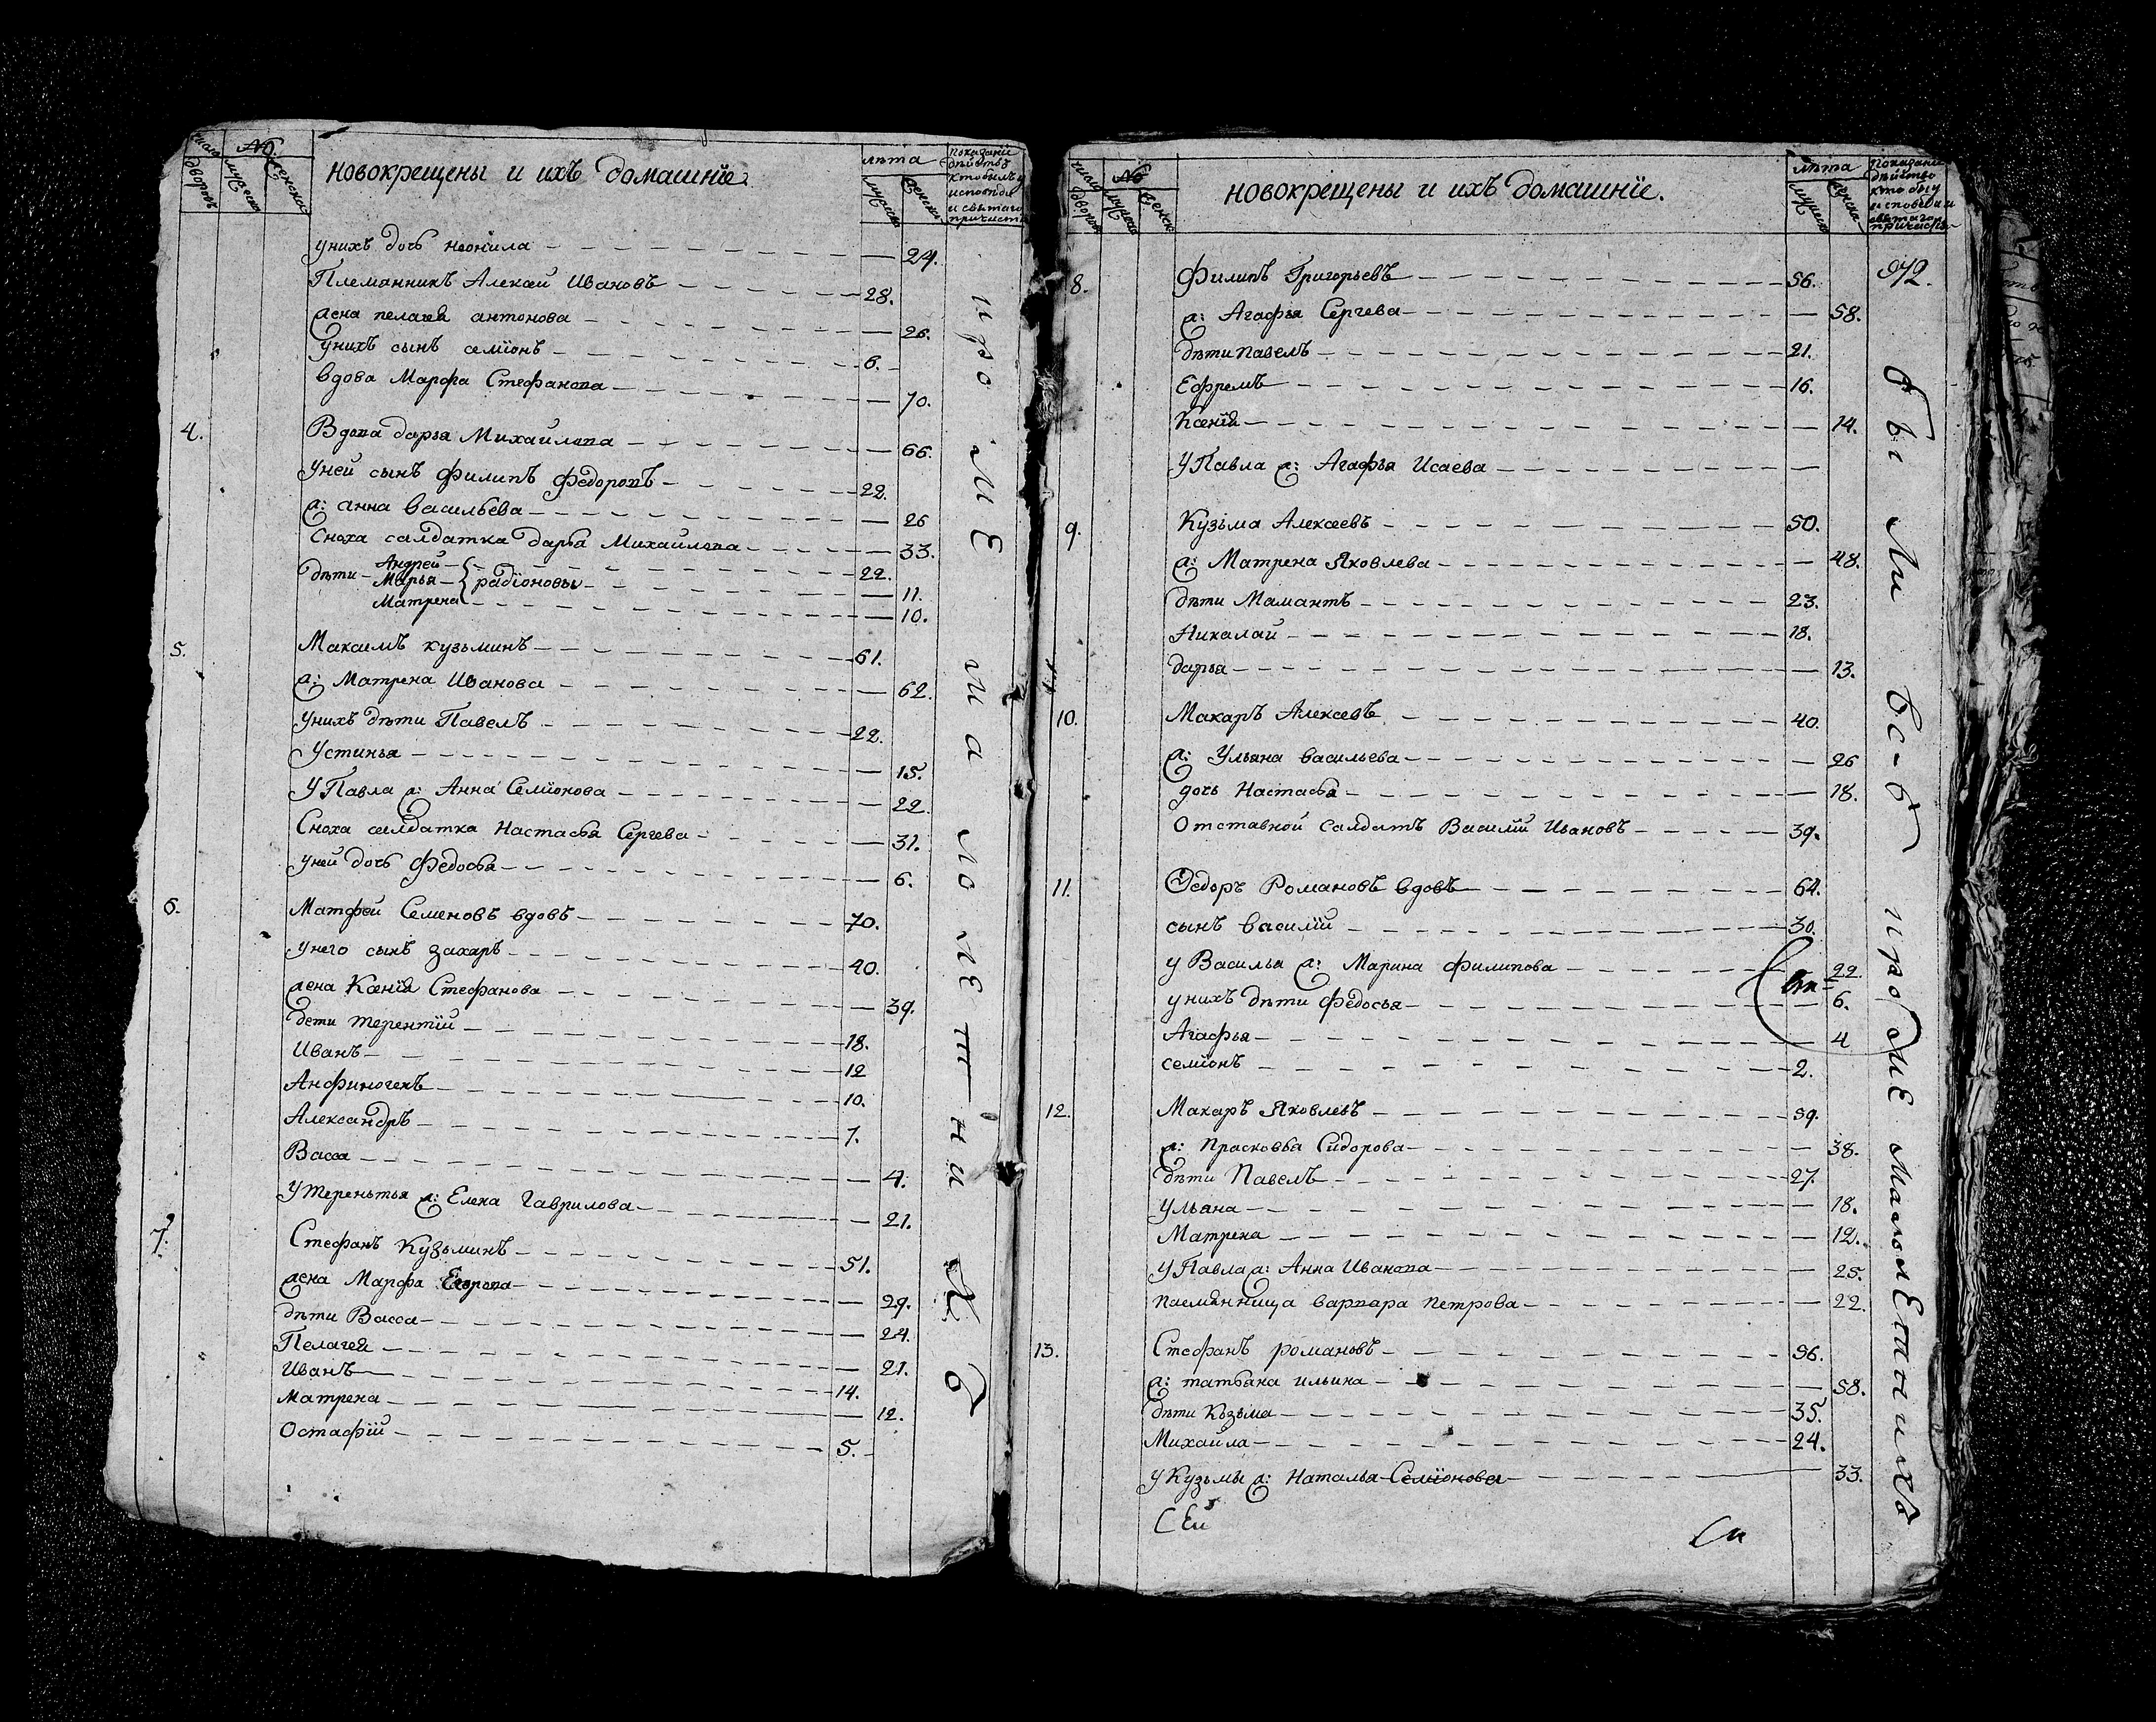 число дворовъ
№.
мужеска
женска
новокрещены и ихъ домашнїе.
лѣта
мужеска
женска
Показанїе дѣйствъ кто былъ у исповѣди и святаго причастї
унихъ дочь неонила 24.
Племянникъ Алексѣй Ивановъ 28.
жена пелагея антонова 26.
унихъ сынъ семїонъ 6.
вдова Марфа Стефанова 70.
4. Вдова дарья Михайлова 66.
уней сынъ филипъ федоровъ 22.
ж: анна васильева 26
Сноха салдатка дарья Михайлова 33.
дѣти Андрей 22.
Марья радїоновы 11.
Матрена 10.
5. Максимъ кузьминъ 61.
ж: Матрена Иванова 62.
унихъ дѣти Павелъ 22.
Устинья 15.
у Павла ж: Анна Семїонова 22.
Сноха салдатка Настасья Сергева 31.
уней дочь Федосья 6.
6. Матфей Семеновъ вдовъ 70.
унего сынъ захаръ 40.
жена Ксенїя Стефанова 39.
дети терентїй 18.
Иванъ 12
Анфиногенъ 10.
Александръ 7.
Васса 4.
у терентья ж: Елена Гаврилова 21.
7. Стефанъ Кузьминъ 51.
жена Марфа Егорова 29.
дѣти Васса 24.
Пелагея 21.
Иванъ 14.
матрена 12.
Остафїй 5.
кроме малолетнихъ
число дворовъ
№
мужеска
женска
новокрещены и ихъ домашнїе.
лѣта
мужеска
женска
Показанїе дѣйство кто былъ у исповѣди и святаго причастї
972.
8. Филипъ Григорьевъ 56.
ж: Агафья Сергева 58.
дѣти павелъ 21.
Ефремъ 16.
Ксенїя 14.
у Павла ж: Агафья Исаева
9. Кузьма Алексеевъ 50.
ж: Матрена Яковлева 48.
дѣти Мамантъ 23.
Николай 18.
дарья 13.
10. Макаръ Алексеевъ 40.
ж: Ульяна васильева 26
дочь Настасья 18.
Отставной Салдатъ Василїй Ивановъ 39.
11. Федоръ Романовъ вдовъ 64.
сынъ василїй 30.
у Василья ж: Марина филипова 22.
унихъ дѣти федосья 6.
Агафья 4
семїонъ 2.
12. Макаръ Яковлевъ 39.
ж: прасковья Сидорова 38.
дѣти Павелъ 27.
ульана 18.
Матрена 12.
у Павла ж: Анна Иванова 25.
племянница варвара петрова 22.
13. Стефанъ романовъ 56.
ж: татьяна ильина 58.
дѣти Кузьма 35.
Михайла 24.
у Кузьмы ж: Наталья Семїонова 33.
Сей
были все кроме малолетнихъ